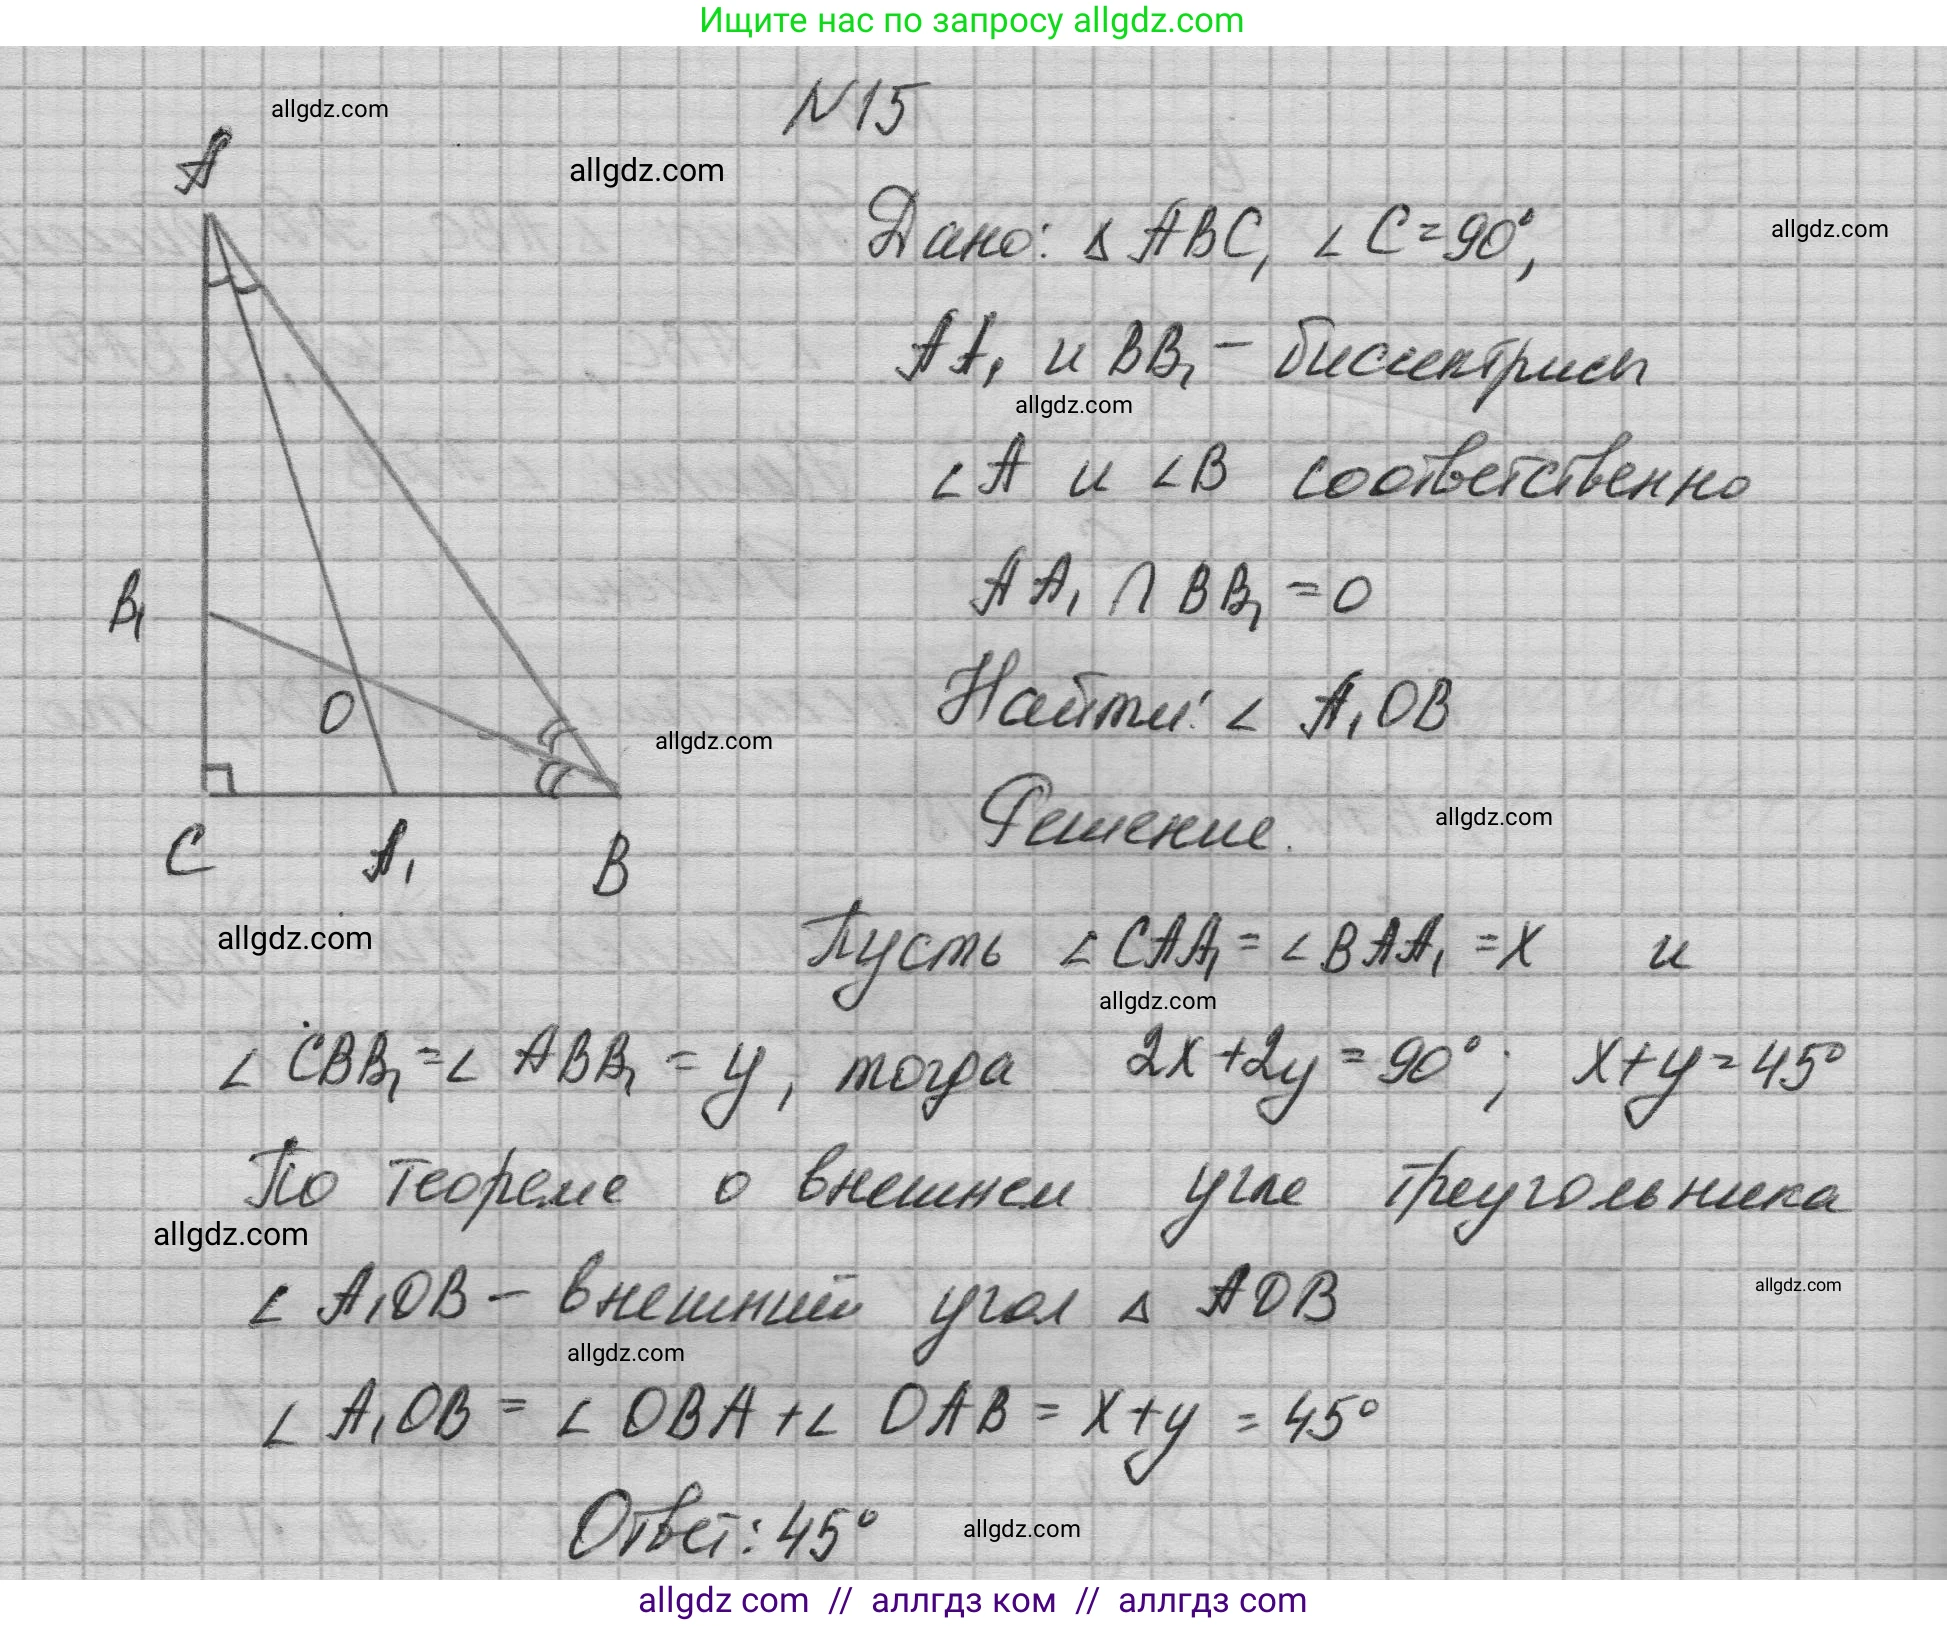 Ищите нас по запросу allgdz.com
N15
allgdz.com
A
allgdz.com
Дано: ∆ ABC, ∠ C = 90°,
allgdz.com
AA₁ и BB₁ – биссектрисы
allgdz.com
∠A и ∠B соответственно
AA₁ ∩ BB₁ = O
B₁
Найти: ∠ A₁OB
O
allgdz.com
Решение.
allgdz.com
C A₁ B
allgdz.com
Пусть ∠ CAA₁ = ∠ BAA₁ = x и
allgdz.com
∠ CBB₁ = ∠ ABB₁ = y, тогда 2x + 2y = 90°; x + y = 45°
По теореме о внешнем угле треугольника
allgdz.com
∠ A₁OB – внешний угол ∆ AOB
allgdz.com
allgdz.com
∠ A₁OB = ∠ OBA + ∠ OAB = x + y = 45°
Ответ: 45°
allgdz.com
allgdz com // аллгдз ком // аллгдз com